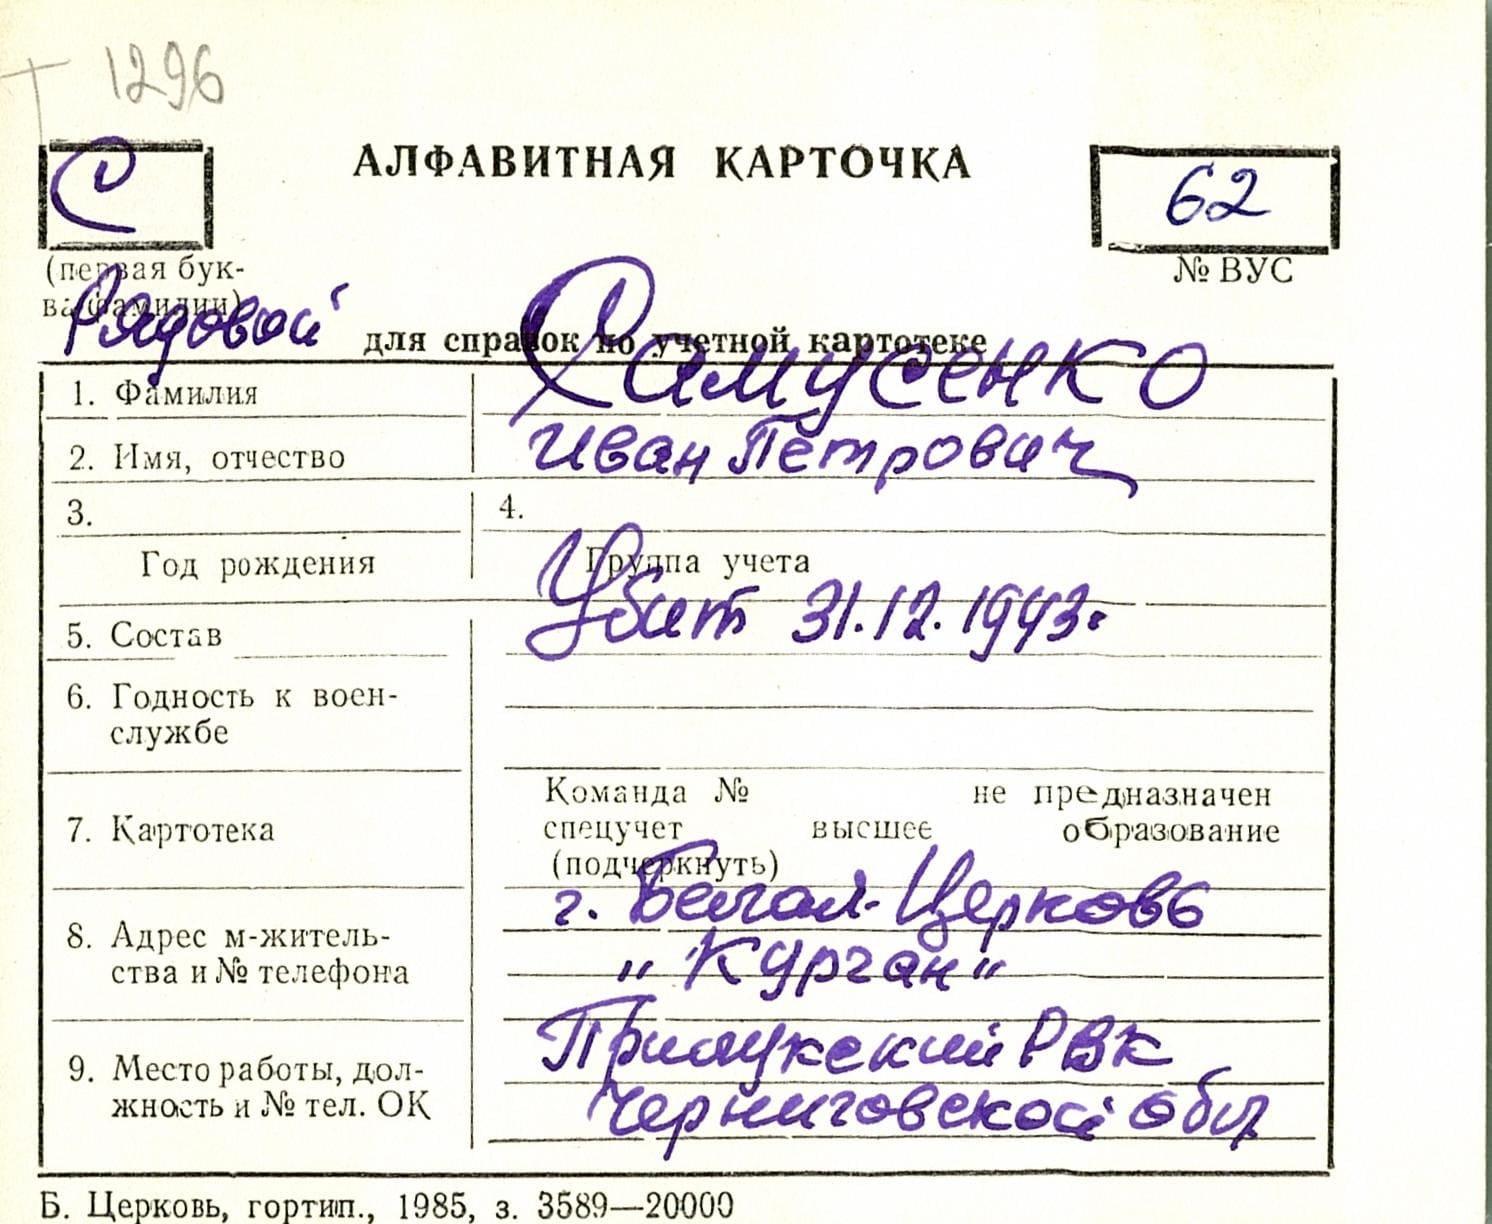 1296
С
АЛФАВИТНАЯ КАРТОЧКА
62
(первая бук-
ва фамилии)
№ ВУС
Рядовой
для справок по учетной картотеке
1. Фамилия
Самусенко
2. Имя, отчество
Иван Петрович
3.
4.
Год рождения
Группа учета
5. Состав
Убит 31.12.1943г
6. Годность к воен-
службе
7. Картотека
Команда № не предназначен
спецучет высшее образование
(подчеркнуть)
8. Адрес м-житель-
ства и № телефона
г. Белая-Церковь
„Курган"
9. Место работы, дол-
жность и № тел. ОК
Прилукский РВК
Черниговской обл
Б. Церковь, гортип., 1985, з. 3589—20000